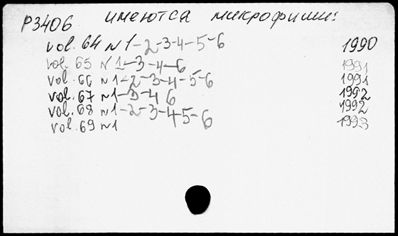 P3406 имеются микрофиши:
vol. 64 N1-2-3-4-5-6 1990
vol. 65 N1-3-4-6 1991
vol. 66 N1-2-3-4-5-6 1991
vol. 67 N1-3-4 6 1992
vol. 68 N1-2-3-4-5-6 1992
vol. 69 N1 1993